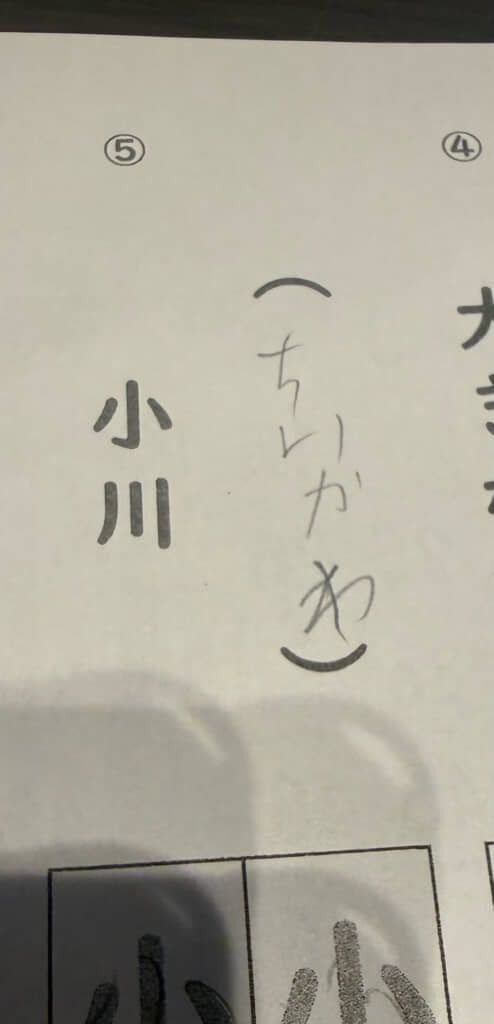 ④
大きな
（ちいかわ）
⑤
小川
小
小